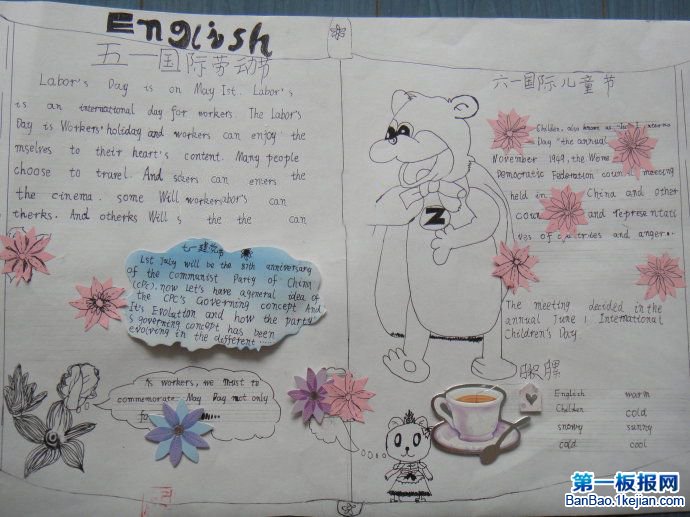 English
五一国际劳动节
Labor's Day is on May 1st. Labor's
is an international day for workers. The Labor's
Day is Workers' holiday and workers can enjoy the
mselves to their heart's content. Many people
choose to travel. And can enters the
the cinema. some Will workers can
therks. And otherks Will s the the can
七一建党节
1st July will be the 87th anniversary
of the Communist Party of China
(CPC), now Let's have ageneral idea of
the CPC's Governing concept And
It's Evolution and how the party
s governing concept has been
evolving in the different.....
As workers, we must to
commemorate May Day not only
六一国际儿童节
Children, also known as
Day "the annual
November 1949, the
Democratic Federation council meeting
held in China and other
and representati
ves of countries and anger...
The meeting decided in the
annual June 1 International
Children's Day.
Z
English warm
Children cold
snowy sunny
cold cool
第一板报网
BanBao.1kejian.com